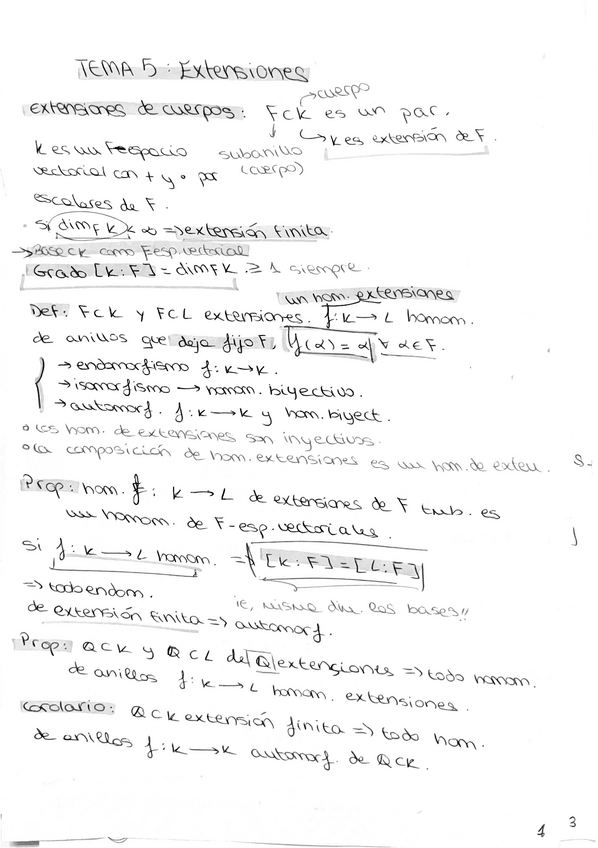 TEMA 5: Extensiones
→cuerpo
extensiones de cuerpos: F⊂K es un par.
↓ ↳ K es extensión de F.
K es un F-espacio subanillo
vectorial con + y · por (cuerpo)
escalares de F.
· si dim_F K < ∞ => extensión finita.
→ Base ⊂ K como F esp. vectorial
Grado [K:F] = dim_F K. ≥ 1 siempre.
un hom. extensiones
Def: F⊂K y F⊂L extensiones. f: K → L homom.
de anillos que deja fijo F, f(α) = α ∀ α∈F.
→ endomorfismo f: K→K.
→ isomorfismo → homom. biyectivo.
→ automorf. f: K → K y hom. biyect.
o los hom. de extensiones son inyectivos.
o la composición de hom. extensiones es un hom. de exten. S-
Prop: hom. f: K → L de extensiones de F tmb. es
un homom. de F-esp. vectoriales.
si f: K → L homom. => [K:F] = [L:F]
=> todo endom. ie, misma dim. las bases!!
de extensión finita => automorf.
Prop: Q⊂K y Q⊂L de Q extensiones => todo homom.
de anillos f: K → L homom. extensiones.
Corolario: Q⊂K extensión finita => todo hom.
de anillos f: K → K automorf. de Q⊂K.
1 3